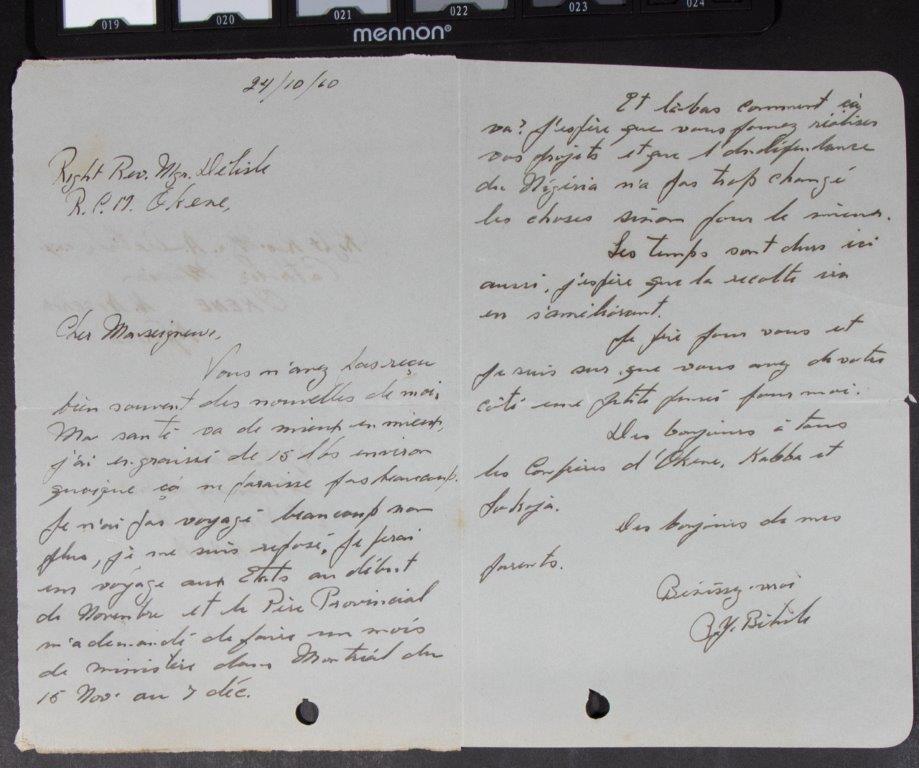 019 020 021 022 023 024
mennon®
24/10/60
Right Rev. Mgr. Délisle
R.C.M. Okene,
Cher Monseigneur,
Vous n'avez pas reçu
bien souvent des nouvelles de moi,
Ma santé va de mieux en mieux,
j'ai engraissé de 15 lbs environ
quoique çà ne paraisse pas beaucoup.
Je n'ai pas voyagé beaucoup non
plus, je me suis reposé, Je ferai
un voyage aux Etats au début
de Novembre et le Père Provincial
m'a demandé de faire un mois
de ministère dans Montréal du
15 Nov. au 7 déc.
Et là-bas comment çà
va? J'espère que vous pouvez réaliser
vos projets et que l'Indépendance
du Nigéria n'a pas trop changé
les choses sinon pour le mieux.
Les temps sont durs ici
aussi, j'espère que la recolte ira
en s'améliorant.
Je prie pour vous et
je suis sur que vous avez de votre
côté une petite pensé pour moi.
Des bonjours à tous
les Confrères d'Okene, Kabba et
Lokoja.
Des bonjours de mes
parents.
Bénissez-moi